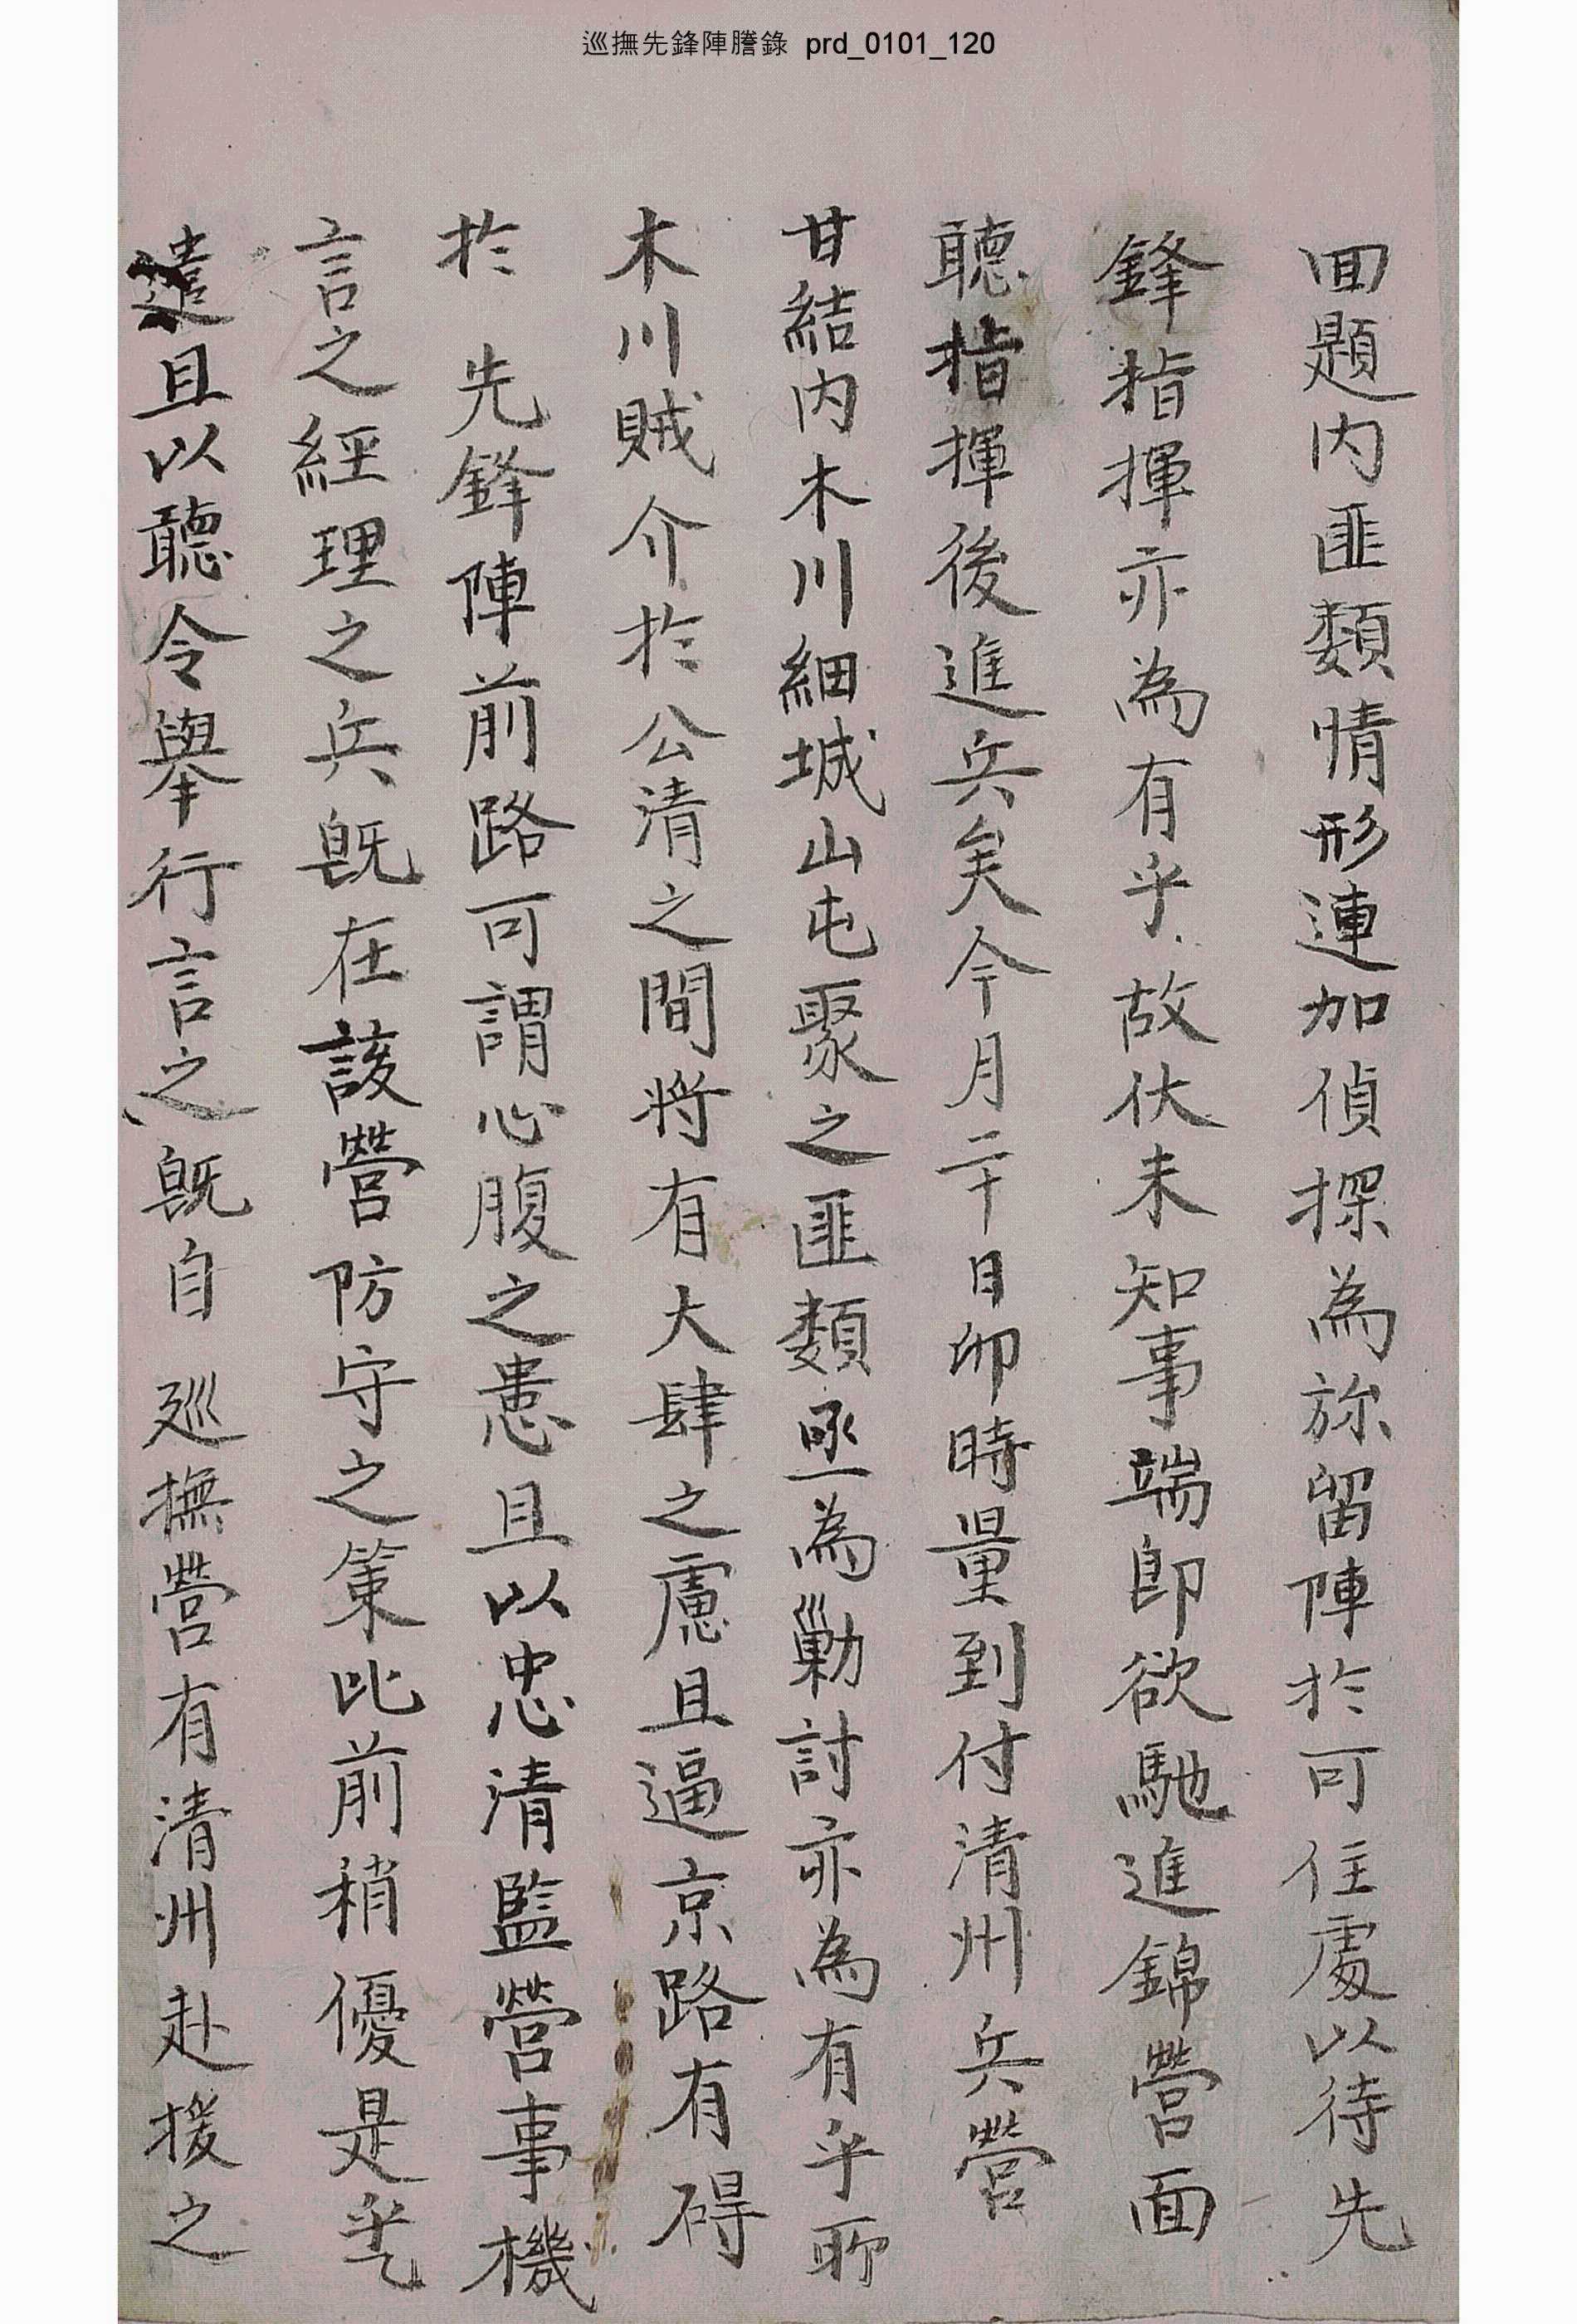 巡撫先鋒陣謄錄 prd_0101_120
回題內匪類情形連加偵探為旀留陣於可住處以待先
鋒指揮亦為有乎故伏未知事端卽欲馳進錦營面
聽指揮後進兵矣今月二十日卯時量到付淸州兵營
甘結內木川細城山屯聚之匪類亟為勦討亦為有乎所
木川賊介於公淸之間將有大肆之慮且逼京路有碍
於 先鋒陣前路可謂心腹之患且以忠淸監營事機
言之經理之兵旣在該營防守之策比前稍優是乎㫆
遣且以聽令擧行言之旣自 巡撫營有淸州赴援之